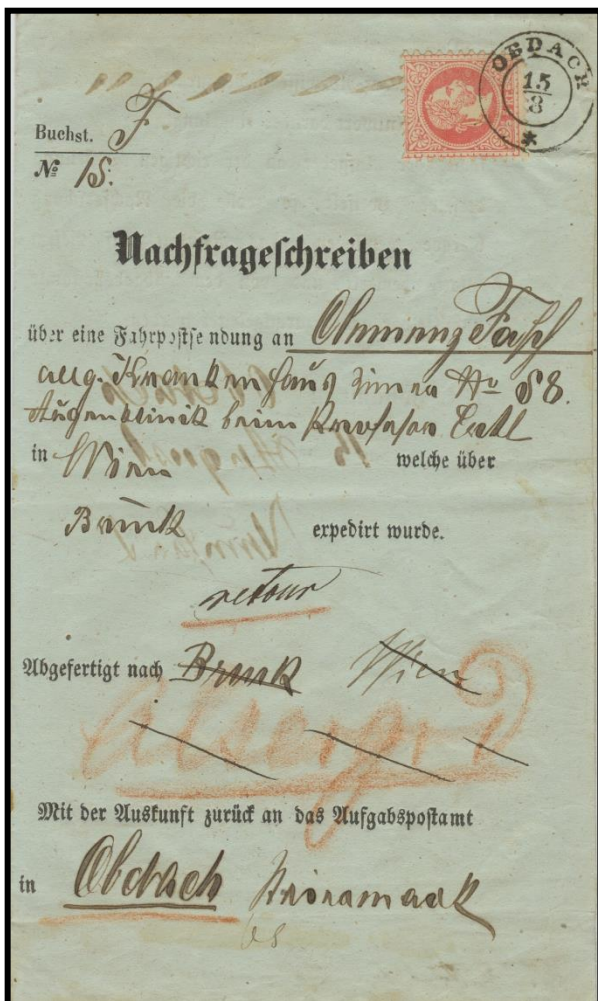 OBDACH
15
8
Buchst. F
№ 15.
Nachfrageschreiben
über eine Fahrpostsendung an
allg. Krankenhaus Zimmer No 58.
Augenklinik beim Professor
in Wien welche über
Bruck expedirt wurde.
retour
Abgefertigt nach Bruck Wien
Alsergr
Mit der Auskunft zurück an das Aufgabspostamt
in Obdach Steiermark